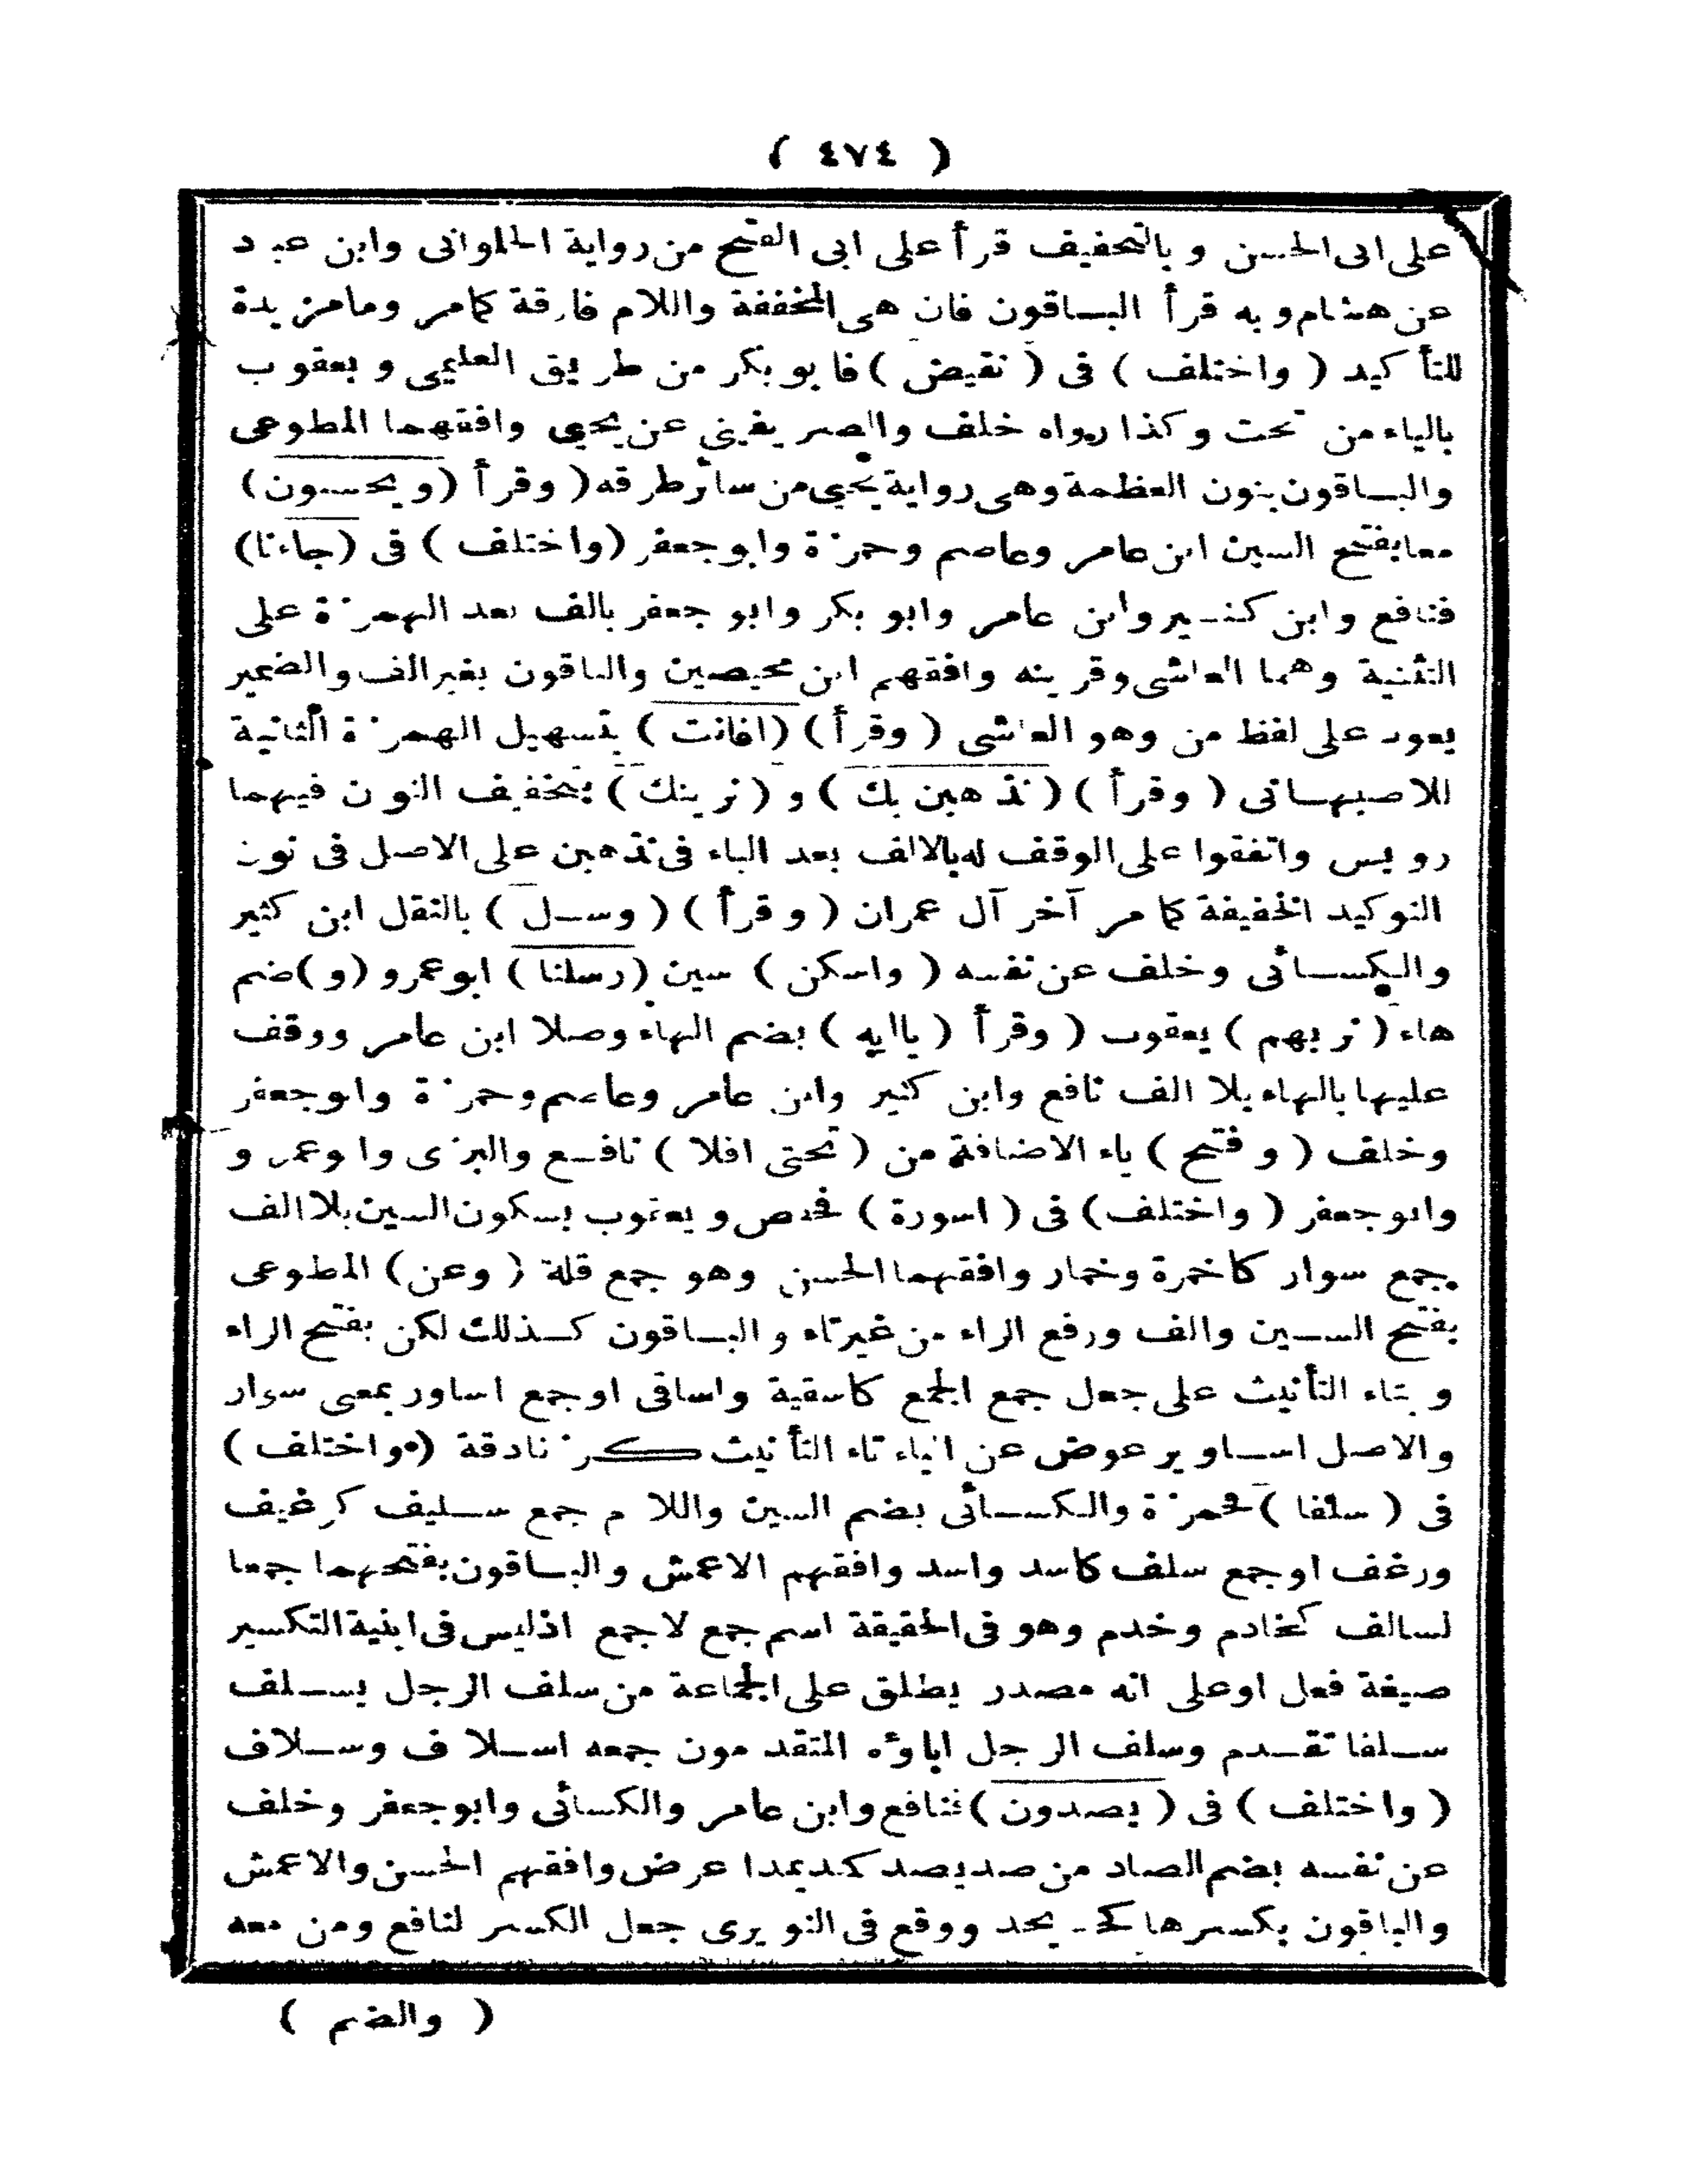 ( ٤٧٤ )
على ابى الحسن وبالتخفيف قرأ على ابى الفتح من رواية الحلوانى وابن عباد
عن هشام وبه قرأ الباقون فان هى المخففة واللام فارقة كامر وما مزيدة
للتأكيد ( واختلف ) فى ( نقيض ) فابوبكر من طريق العليمى ويعقوب
بالياء من تحت وكذا رواه خلف والصريفينى عن يحيى وافقهما المطوعى
والباقون بنون العظمة وهى رواية يحيى من سائر طرقه ( وقرأ ( ويحسبون )
معا بفتح السين ابن عامر وعاصم وحمزة وابو جعفر ( واختلف ) فى ( جاءنا )
فنافع وابن كثير وابن عامر وابو بكر وابو جعفر بالف بعد الهمزة على
التثنية وهما العاشى وقرينه وافقهم ابن محيصين والباقون بغير الف والضمير
يعود على لفظ من وهو العاشى ( وقرأ ) ( افانت ) بتسهيل الهمزة الثانية
للاصبهانى ( وقرأ ) ( نذهبن بك ) و ( نرينك ) بتخفيف النون فيهما
رويس واتفقوا على الوقف له بالالف بعد الباء فى نذهبن على الاصل فى نون
التوكيد الخفيفة كا مر آخر آل عمران ( وقرأ ) ( وسل ) بالنقل ابن كثير
والكسائى وخلف عن نفسه ( واسكن ) سين ( رسلنا ) ابوعمرو ( و ) ضم
هاء ( نريهم ) يعقوب ( وقرأ ( ياايه ) بضم الهاء وصلا ابن عامر ووقف
عليها بالهاء بلا الف نافع وابن كثير وابن عامر وعاصم وحمزة وابوجعفر
وخلف ( وفتح ) ياء الاضافة من ( تحتى افلا ) نافع والبزى وابوعمرو
وابوجعفر ( واختلف ) فى ( اسورة ) فحفص ويعقوب بسكون السين بلا الف
جمع سوار كاخمرة وخمار وافقهما الحسن وهو جمع قلة ( وعن ) المطوعى
بفتح السين والف ورفع الراء من غير تاء والباقون كذلك لكن بفتح الراء
وبتاء التأنيث على جعل جمع الجمع كاسقية واساقى اوجمع اساور بمعنى سوار
والاصل اساوير عوض عن الياء تاء التأنيث كزنادقة ( واختلف )
فى ( سلفا ) فحمزة والكسائى بضم السين واللام جمع سليف كرغيف
ورغف اوجمع سلف كاسد واسد وافقهم الاعمش والباقون بفتحهما جمعا
لسالف كخادم وخدم وهو فى الحقيقة اسم جمع لاجمع اذليس فى ابنية التكسير
صيغة فعل اوعلى انه مصدر يطلق على الجماعة من سلف الرجل يسلف
سلفا تقدم وسلف الرجل اباؤه المتقدمون جمعه اسلاف وسلاف
( واختلف ) فى ( يصدون ) فنافع وابن عامر والكسائى وابوجعفر وخلف
عن نفسه بضم الصاد من صد يصد كمد يمد اعرض وافقهم الحسن والاعمش
والباقون بكسرها كحد يحد ووقع فى النويرى جعل الكسر لنافع ومن معه
( والضم )